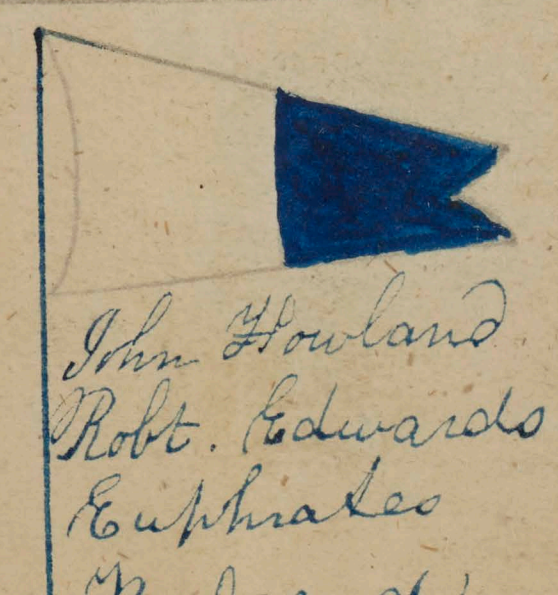 John Howland
Robt. Edwards
Euphrates